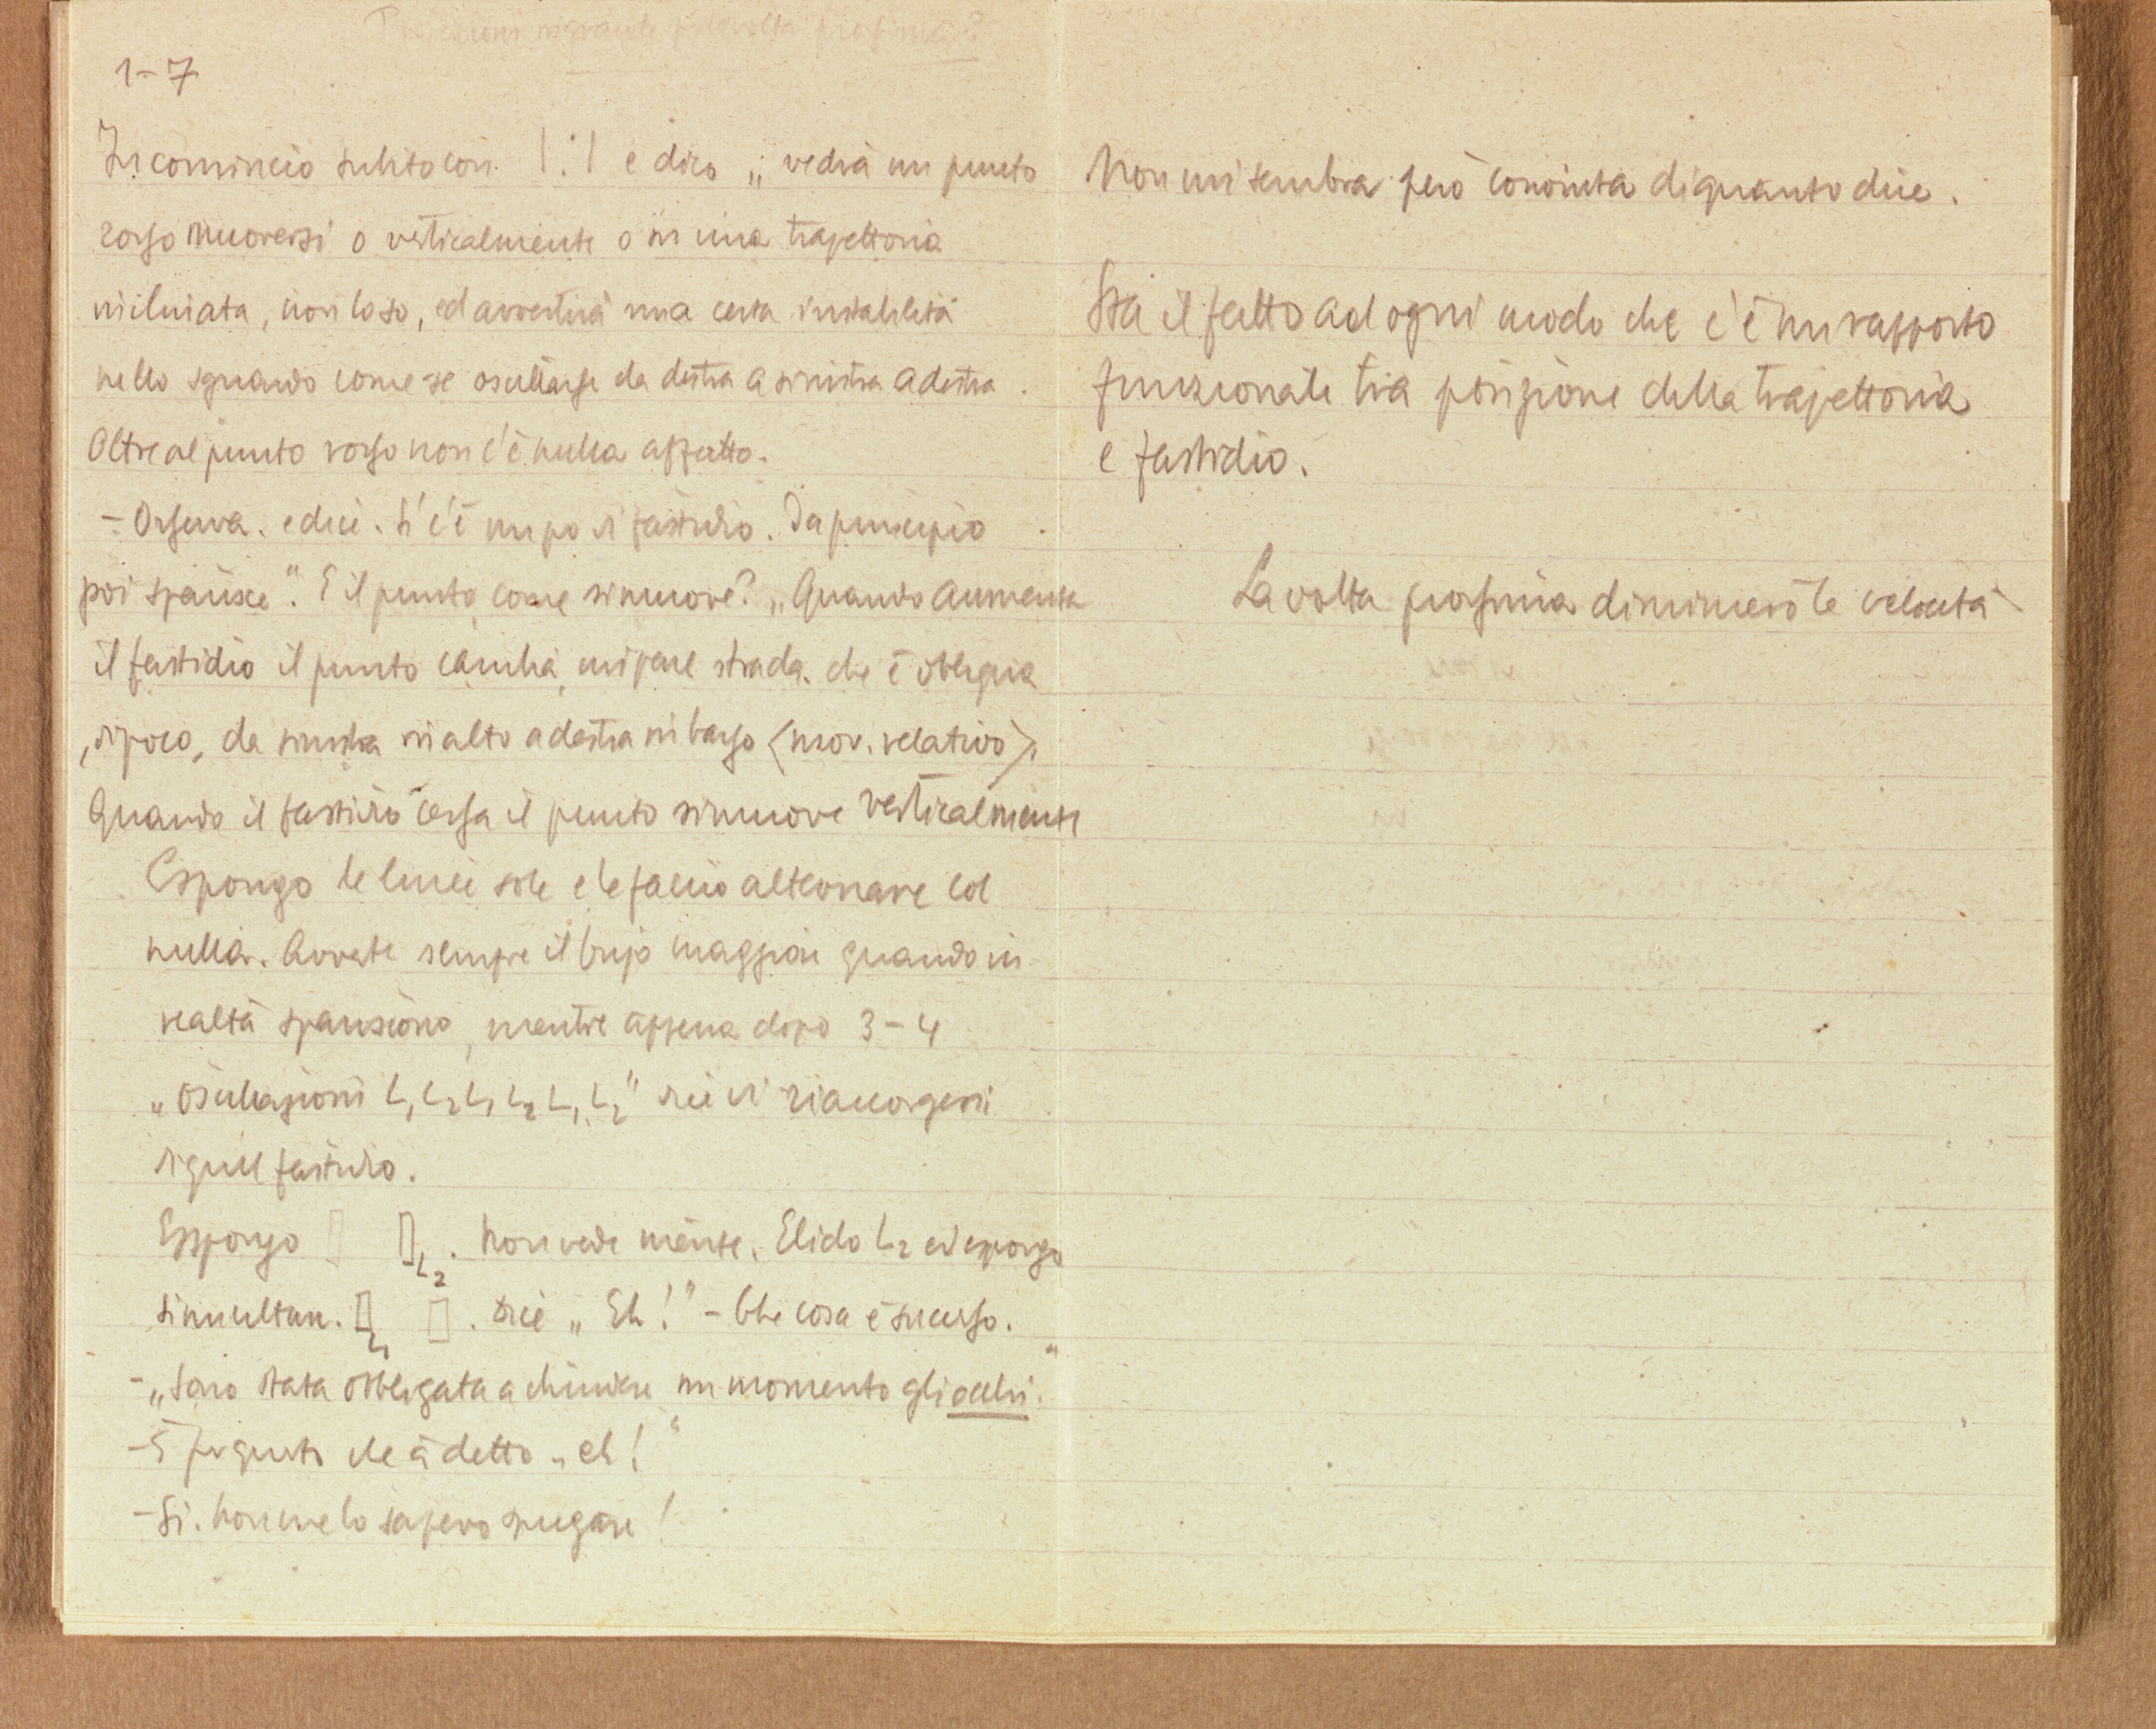 1-7
Incomincio subito con | : | e dico „ vedrà un punto
rosso muoversi o verticalmente o in una trajettoria
inclinata, non lo so, ed avvertirà una certa instabilità
nello sguardo come se oscillasse da destra a sinistra a destra.
Oltre al punto rosso non c'è nulla affatto.
- Osserva. e dice. Sì c'è un po di fastidio. Da principio
poi sparisce". E il punto come si muove? „Quando aumenta
il fastidio il punto cambia, mi pare strada. che è obliqua
, di poco, da sinistra in alto a destra in basso <mov. relativo>.
Quando il fastidio cessa il punto si muove verticalmente
Espongo le linee sole e le faccio alternare col
nulla. Avverte sempre il bujo maggiore quando in
realtà spariscono, mentre appena dopo 3-4
„oscillazioni L1 L2 L1 L2 L1 L2" dice di riaccorgersi
di quel fastidio.
Espongo L2. Non vede niente. Elido L2 ed espongo
simultan. L1. dice „ Eh!" - Che cosa è successo.
- „Sono stata obbligata a chiudere un momento gli occhi."
- È per questo che à detto „eh!"
- Sì. Non me lo sapevo spiegare!
Non mi sembra però convinta di quanto dice.
Sta il fatto ad ogni modo che c'è un rapporto
funzionale tra posizione della trajettoria
e fastidio.
La volta prossima diminuerò le velocità